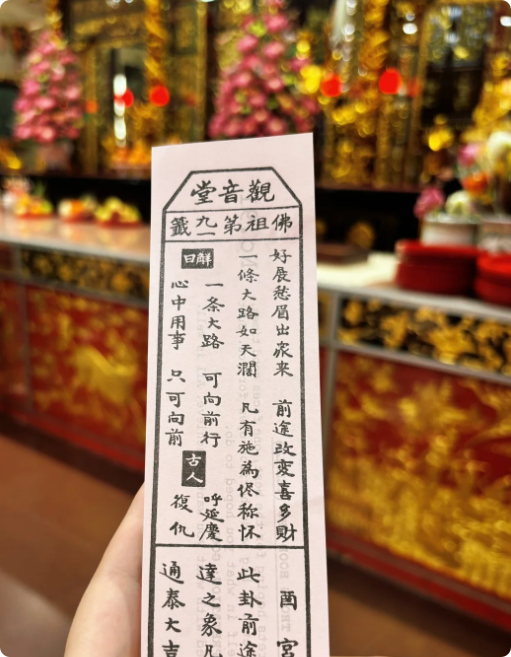 觀音堂
佛祖第九一籤
好展愁眉出家来 前途改變喜多財
一條大路如天濶 凡有施為侭称怀
觧曰
一条大路 可向前行
心中用事 只可向前
古人
呼延慶
復仇
酉宮
此卦前途
達之象凡
通泰大吉